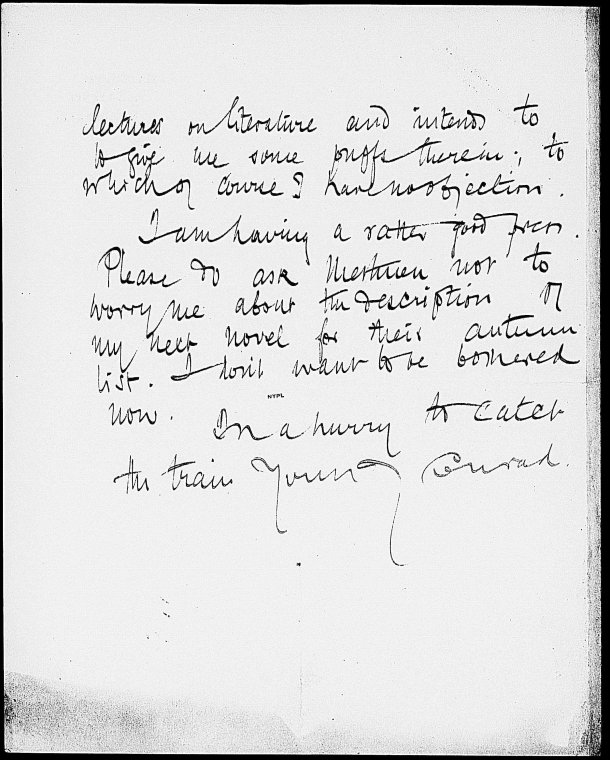 lectures on literature and intends to
to give me some puffs therein; to
which of course I have no objection.
I am having a rather good press.
Please do ask Methuen not to
worry me about the description of
my next novel for their autumn
list. I don't want to be bothered
now.
NYPL
In a hurry to catch
the train Yours Conrad.